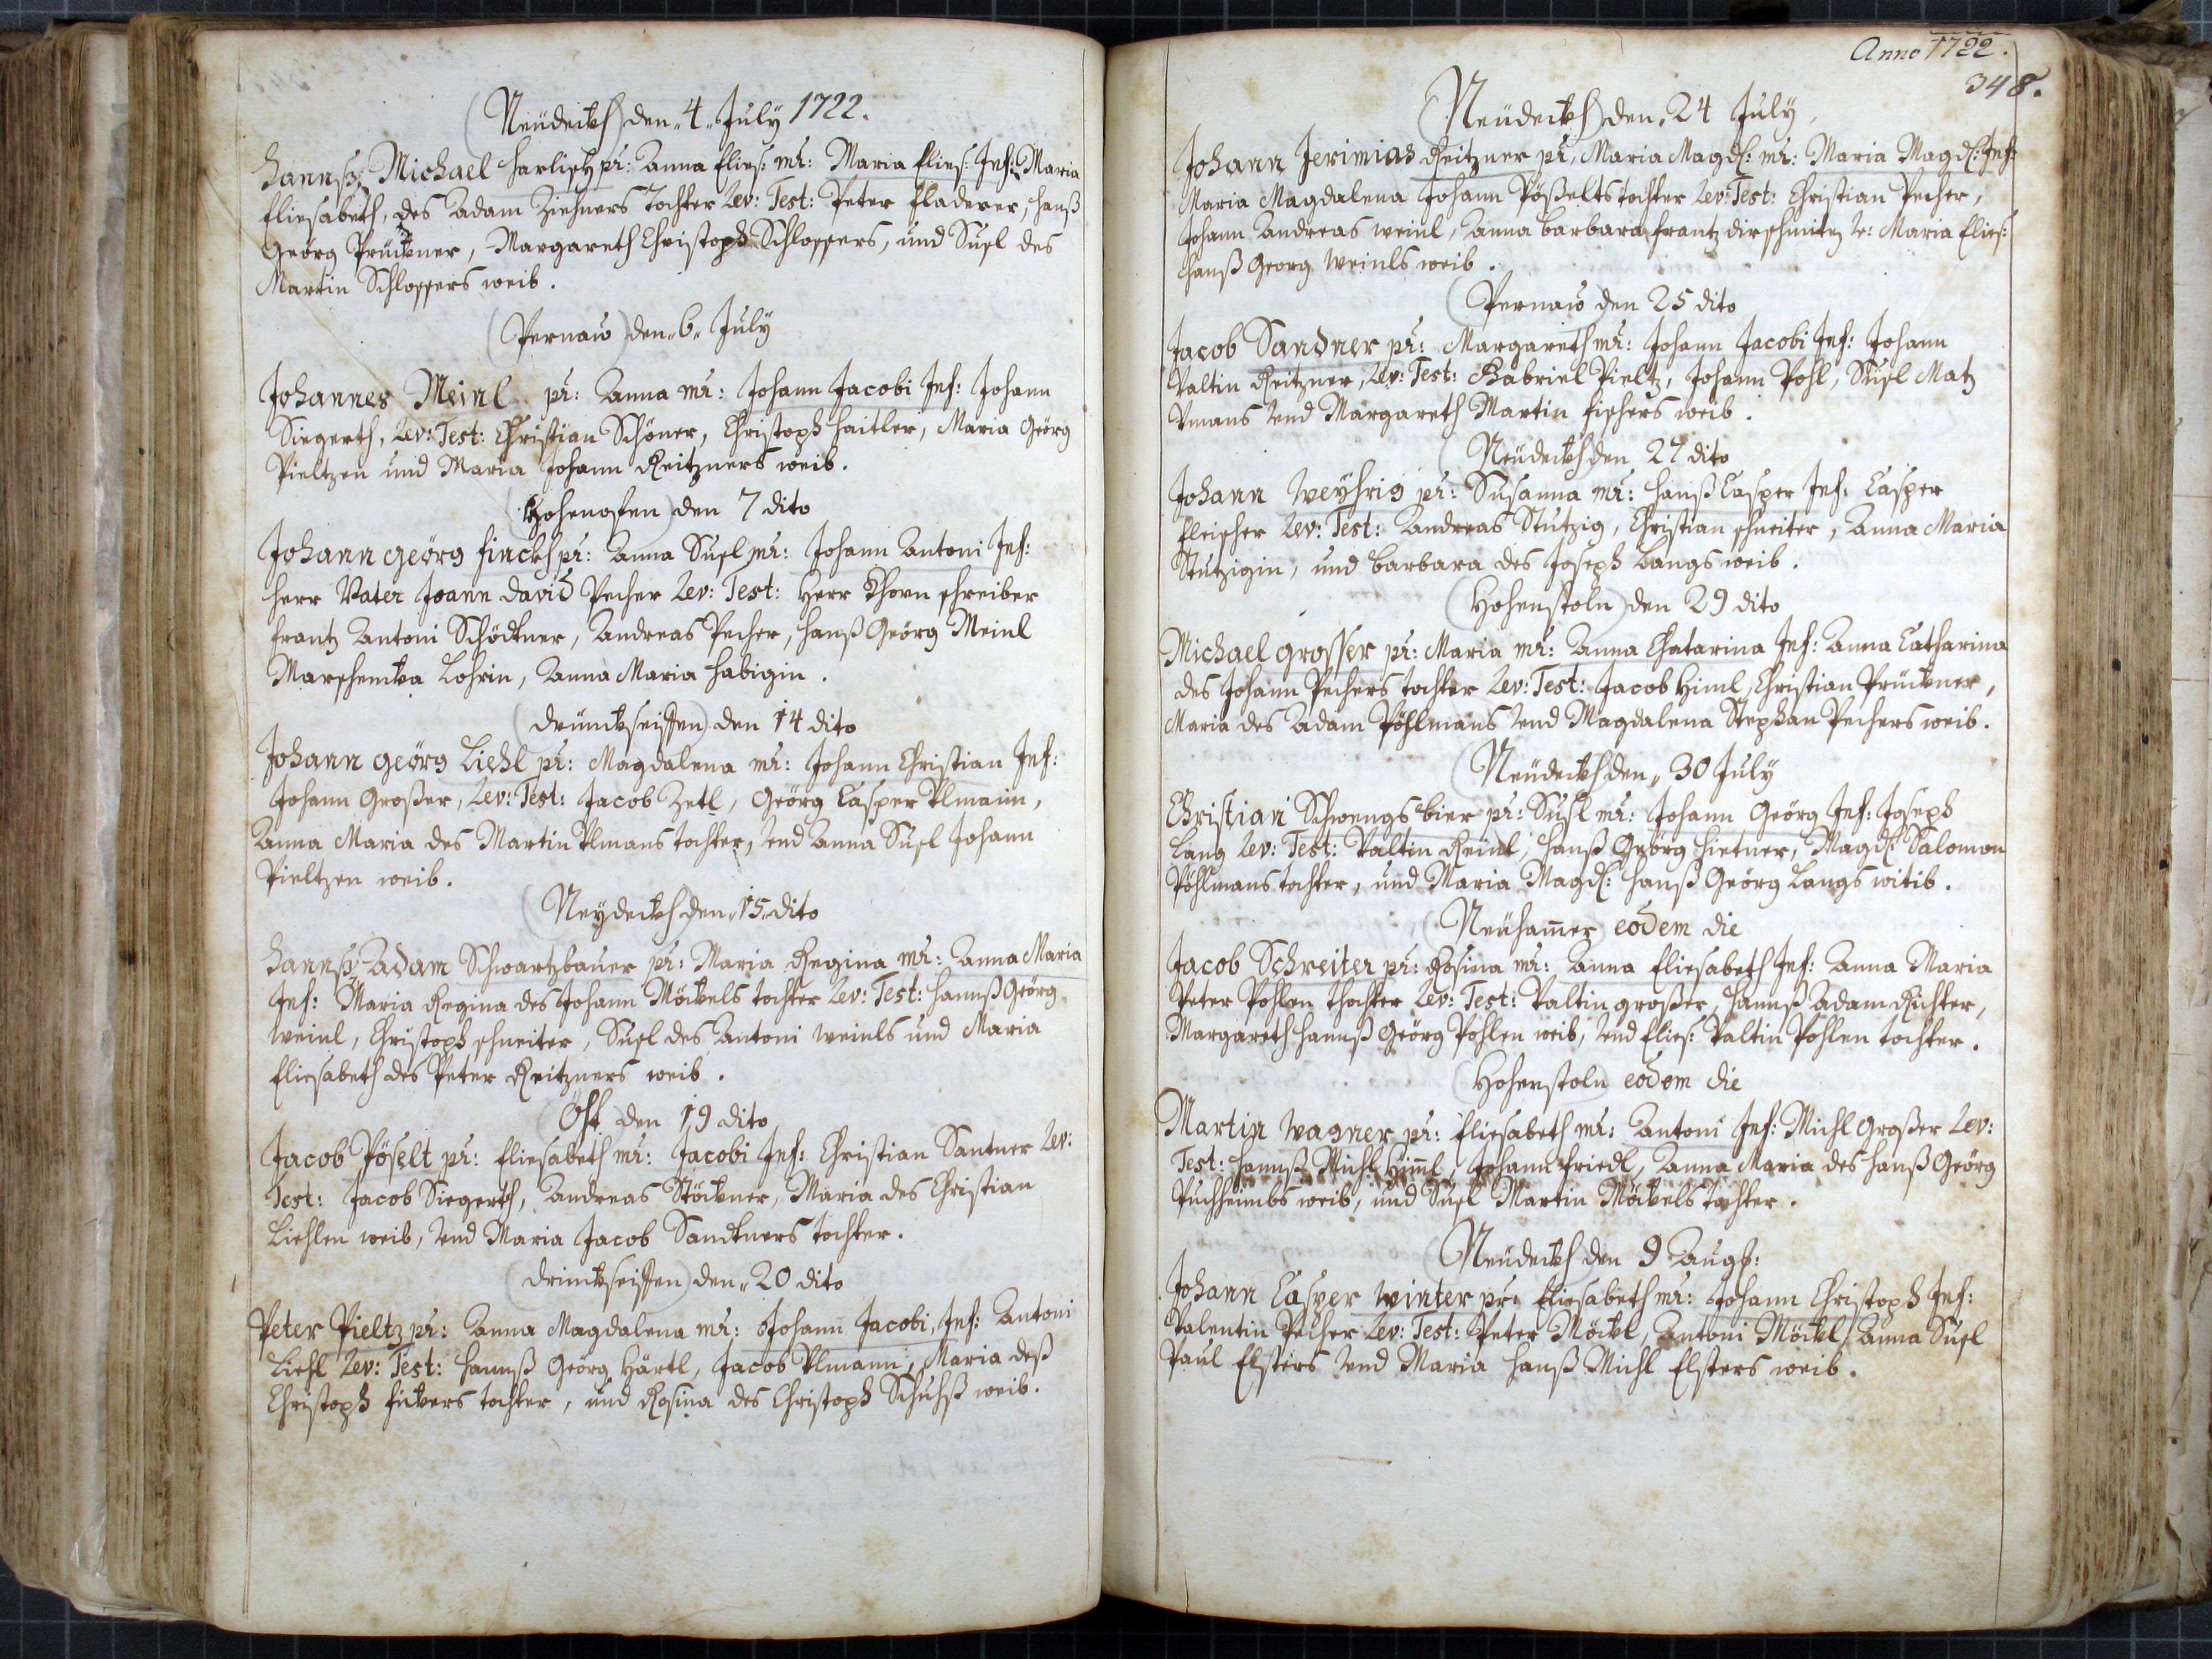 Neüdeckh den 4 July 1722.
Hannß Michael Harlisch pr: Anna Elies: mr: Maria Elies: Inf: Maria
Eliesabeth, des Adam Ziehners tochter Lev: Test: Peter Fladerer, Hanß
Geörg Prückner, Margareth Christoph Schlossers, und Susl des
Martin Schlossers weib.
Pernau den 6 July
Johannes Meinl pr: Anna mr: Johann Jacobi Inf: Johann
Siegerth, Lev: Test: Christian Schöner, Christoph Haitler, Maria Geörg
Pieltzen und Maria Johann Reitzners weib.
Hohenofen den 7 dito
Johann geörg Finckh pr: Anna Susl mr: Johann Antoni Inf:
Herr Vater Joann David Pecher Lev: Test: Herr Khorn schreiber
Frantz Antoni Schödtner, Andreas Pecher, Hanß Geörg Meinl
Lohrin, Anna Maria Habigin.
drünckseiffen den 14 dito
Johann geörg Liehl pr: Magdalena mr: Johann Christian Inf:
Johann Großer, Lev: Test: Jacob Zetl, Geörg Casper Ulmann,
Anna Maria des Martin Ulmans tochter, und Anna Susl Johann
Pieltzen weib.
Neydeckh den 15 dito
Hannß Adam Schwartzbauer pr: Maria Regina mr: Anna Maria
Inf: Maria Regina des Johann Möckels tochter Lev: Test: Hannß Geörg
Weinl, Christoph schneiter, Susl des Antoni Weinls und Maria
Eliesabeth des Peter Reitzners weib.
Ößt den 19 dito
Jacob Pöselt pr: Eliesabeth mr: Jacobi Inf: Christian Santner Lev:
Test: Jacob Siegerth, Andreas Stöckner, Maria des Christian
Liehlen weib, und Maria Jacob Sandtners tochter.
drinckseiffen den 20 dito
Peter Pieltz pr: Anna Magdalena mr: Johann Jacobi, Inf: Antoni
Liehl Lev: Test: Hannß Geörg Härtl, Jacob Ulmann, Maria deß
Christoph Fickers tochter, und Rosina des Christoph Schuhß weib.
Anno 1722.
348.
Neüdeckh den 24 July
Johann Jerimias Reitzner pr, Maria Magdl: mr: Maria Magdl: Inf:
Maria Magdalena Johann Pößelts tochter Lev: Test: Christian Pecher,
Johann Andreas Weinl, Anna Barbara Frantz Maria Elies:
Hanß Georg Weinls weib.
Pernau den 25 dito
Jacob Sandner pr: Margareth mr: Johann Jacobi Inf: Johann
Valtin Reitzner, Lev: Test: Gabriel Pieltz, Johann Pohl, Susl Matz
Vmans und Margareth Martin Fischers weib.
Neüdeckh den 27 dito
Johann Weyhrig pr: Susanna mr: Hanß Casper Inf: Casper
Fleischer Lev: Test: Andreas Stutzig, Christian schneiter, Anna Maria
Stutzigin, und Barbara des Joseph Langs weib.
Hohenstoln den 29 dito
Michael grosser pr: Maria mr: Anna Chatarina Inf: Anna Catharina
des Johann Pechers tochter Lev: Test: Jacob Himl, Christian Prückner,
Maria des Adam Pöhlmans und Magdalena Stephan Pechers weib.
Neüdeckh den 30 July
Christian Schwengsbier pr: Susl mr: Johann Geörg Inf: Joseph
Lang Lev: Test: Valtin Reinl, Hanß Geörg Hietner, Magdl: Salomon
Pöhlmans tochter, und Maria Magdl: Hanß Geörg Langs witib.
Neühamer eodem die
Jacob Schreiter pr: Rosina mr: Anna Eliesabeth Inf: Anna Maria
Peter Pohlen thochter Lev: Test: Valtin großer, Hannß Adam Richter,
Margareth Hannß Geörg Pohlen weib, und Elies: Valtin Pohlen tochter.
Hohenstoln eodem die
Martin Wagner pr: Eliesabeth mr: Antoni Inf: Michl Großer Lev:
Test: Hannß Michl Himl, Johann Friedl, Anna Maria des Hanß Geörg
Puchheimbs weib, und Susl Martin Möckels tochter.
Neüdeckh den 9 Augs:
Johann Casper Winter pr: Eliesabeth mr: Johann Christoph Inf:
Valentin Pecher Lev: Test: Peter Möckl, Antoni Möckl, Anna Susl
Paul Elsters und Maria Hanß Michl Elsters weib.